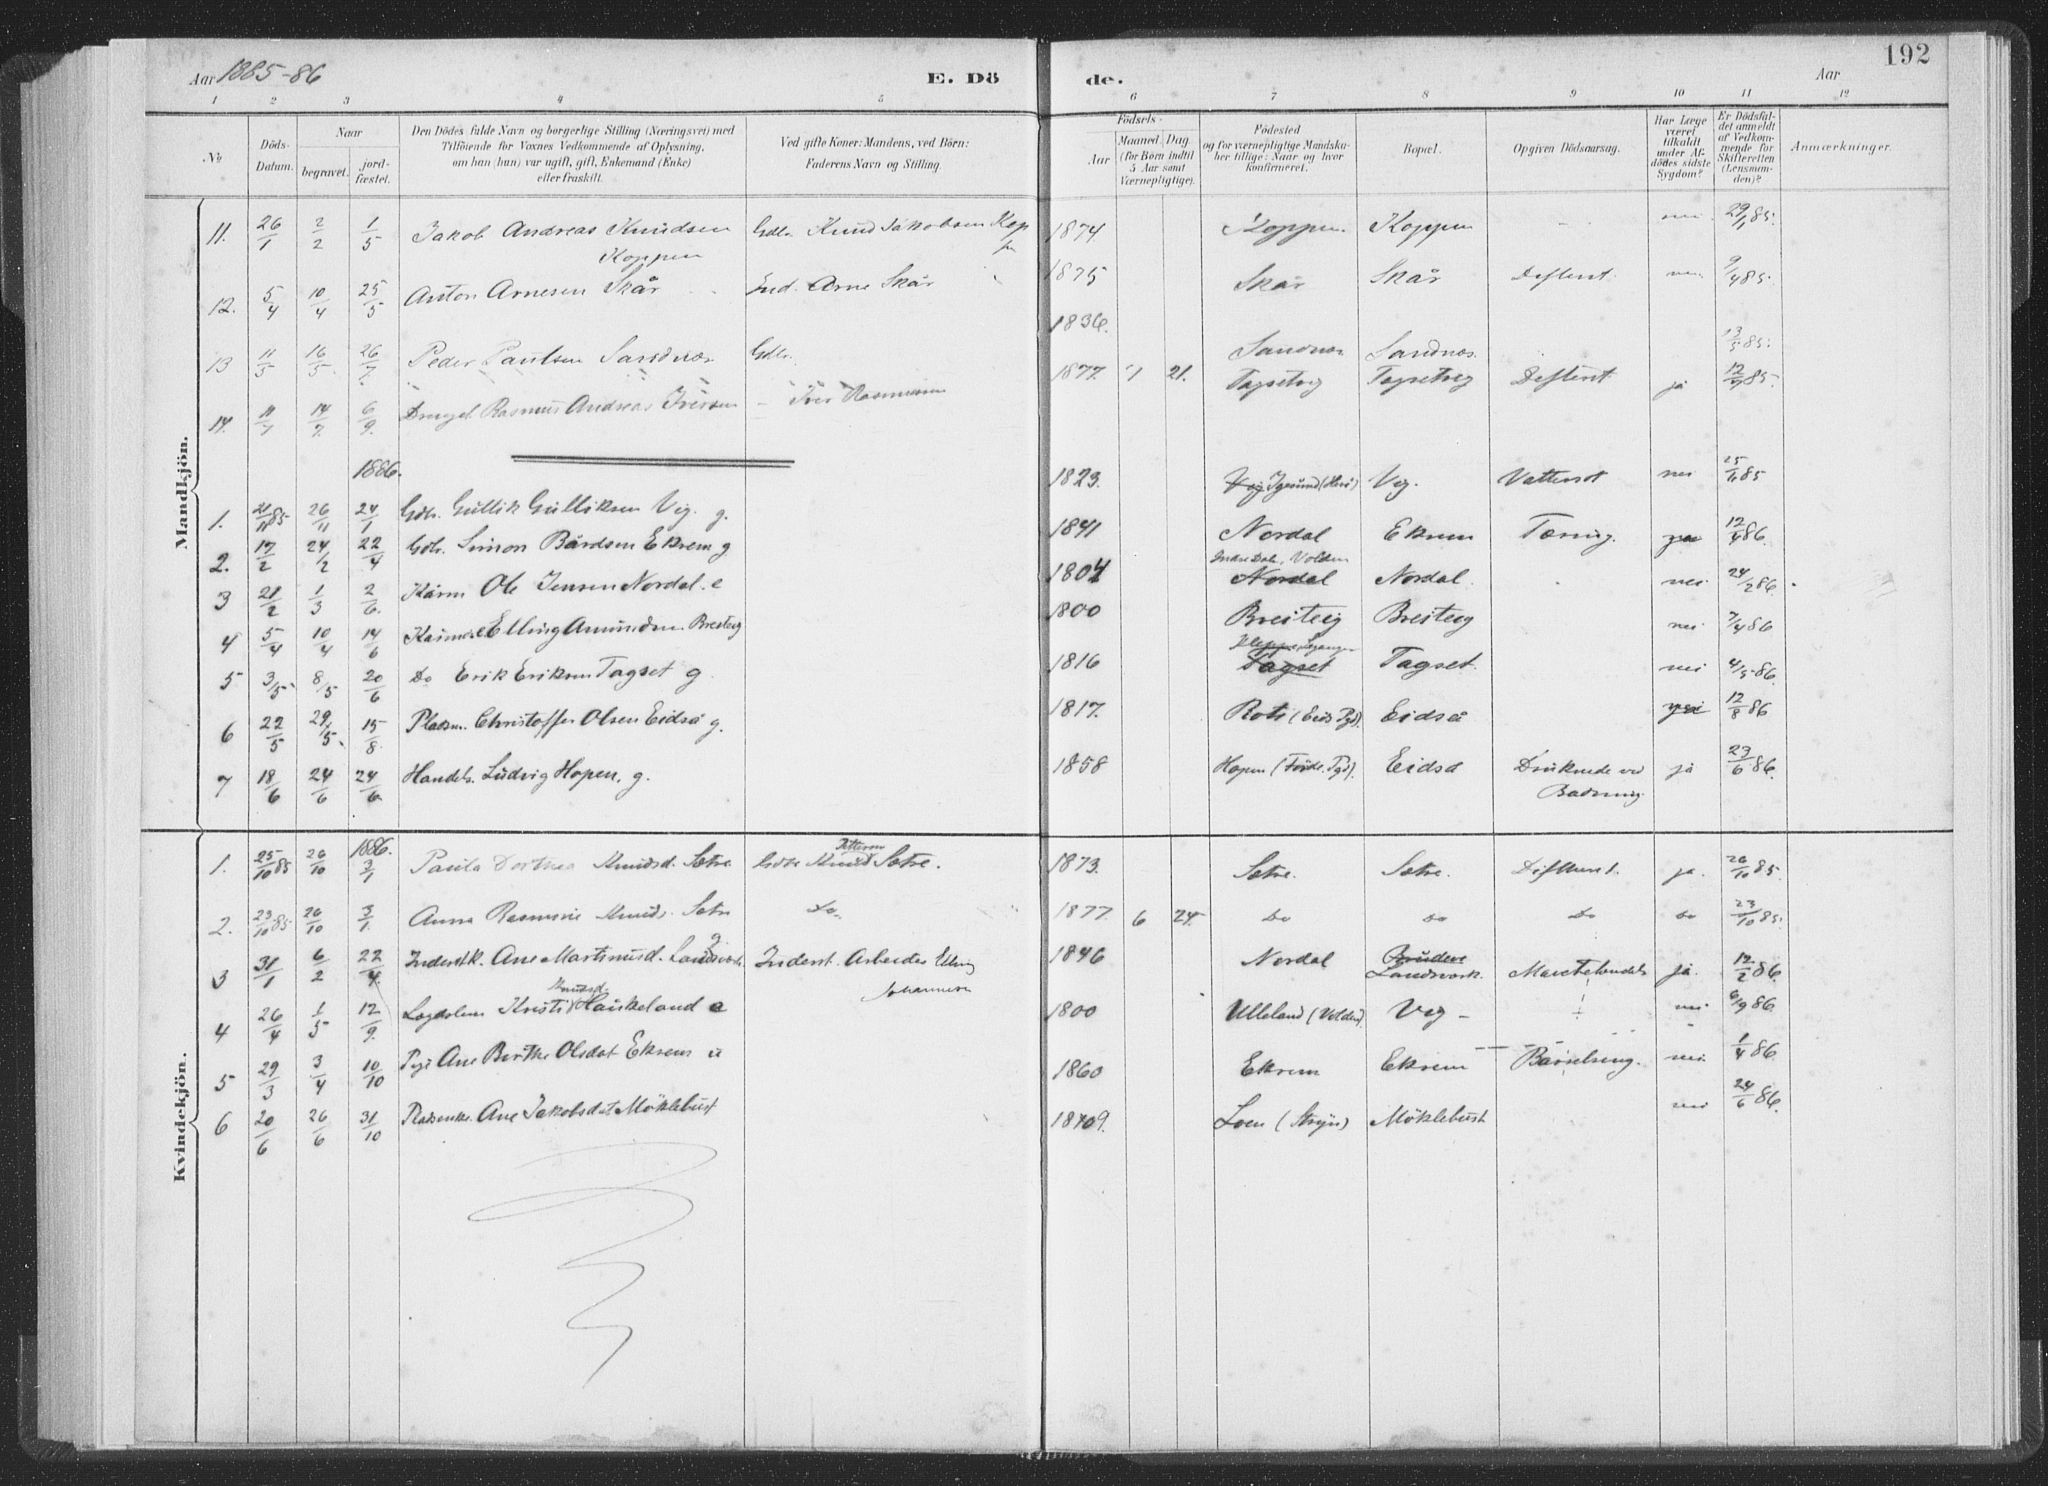 Aar 1885-86 E. Dö de. Aar 192
1 2 3 4 5 6 7 8 9 10 11 12
No
Döds-Datum.
Naar
begravet.
jord-fæstet.
Den Dödes fulde Navn og borgerlige Stilling (Næringsvei) med
Tilföiende for Voxnes Vedkommende af Oplysning,
om han (hun) var ugift, gift, Enkemand (Enke)
eller fraskilt.
Ved gifte Koner: Mandens, ved Börn:
Faderens Navn og Stilling.
Födsels-
Aar
Maaned. Dag
(for Börn indtil
5 Aar samt
Værnepligtige).
Födested
og for værnepligtige Mandska-
ber tillige: Naar og hvor
konfirmeret.
Bopæl.
Opgiven Dödsaarsag.
Har Læge
været
tilkaldt
under Af-
dödes sidste
Sygdom?
Er Dödsfal-
det anmeldt
af Vedkom-
mende for
Skifteretten
(Lensman-
den)?
Anmærkninger.
Mandkjön.
11. 26/1 2/2 1/5 Jakob Andreas Knudsen Koppen Gdbr. Knud Jakobsen Koppen 1874 Koppen. Koppen nei. 29/1 85.
12. 5/4 10/4 25/5 Anton Arnesen Skår Ind. Arne Skår 1875 Skår Skår Difterit. nei 9/4 85.
13 11/5 16/5 26/7 Peder Paulsen Sandnæs Gdbr. 1836. Sandnæs Sandnæs. 13/5 85.
14. 11/7 14/7 6/9 Rasmus Andreas Iversen Iver Rasmussen 1877. 1 21. Tagsetvig Tagsetvig Difterit ja 12/7 85.
1886.
1. 21/11 85 26/11 24/1 Gdbr. Gullik Gulliksen Vig. g. 1823. Vig. Vattersot nei 25/11 85
2. 17/2 24/2 22/4 Gdbr. Simon Bårdsen Ekrem g 1841 Nordal Ekrem Tæring. 12/4 86.
3 21/2 1/3 2/6. Kårm Ole Jensen Nordal. e 1804 Indre Dale, Volden Nordal Nordal. nei. 24/2 86.
4 5/4 10/4 14/6 Elling Amundsen Breiteig 1800 Breiteig Breiteig nei 7/4 86
5 3/5 8/5 20/6 Do Erik Eriksen Tagset g 1816 Tagset Tagset. nei 4/5 86.
6 22/5 29/5. 15/8. Pladsm. Christoffer Olsen Eidså g. 1817. Roti (Eids Pgd). Eidså 12/8 86
7 18/6 24/6 24/6. Handels. Ludvig Hopen, g. 1858 Hopen (Förde Pgd). Eidså Druknede ved Badning. ja 23/6 86.
Kvindekjön.
1886.
1. 25/10 85 26/10 3/1 Paula Dorthea Knudsd. Sætre Gdbr Knud Pettersen Sætre. 1873. Sætre. Sætre. Difterit. ja. 26/10 85.
2. 23/10 85 26/10 3/1. Anna Rasmine Knuds. Sætre Do 1877. 6 24 Do Do Do Do 23/10 85.
3 31/1 6/2 22/4 Inderstk. Ane Martinusd. Landsverk g Inderst. Arbeider Elling Johannesen 1846 Nordal Landsverk. ja. 12/2 86.
4 26/4 1/5 12/9. Kristi Knudsd Haukeland e 1800 Ulleland (Volden) Vig nei 6/9 86.
5 29/3 3/4 10/10 Pige Ane Birthe Olsdat Ekrem u 1860 Ekrem Ekrem Barselseng. nei 1/4 86.
6 20/6 26/6 31/10 Pladsenke. Ane Jakobsdat Möklebust 1809. Loen (Stryn) Möklebust nei 24/6 86.